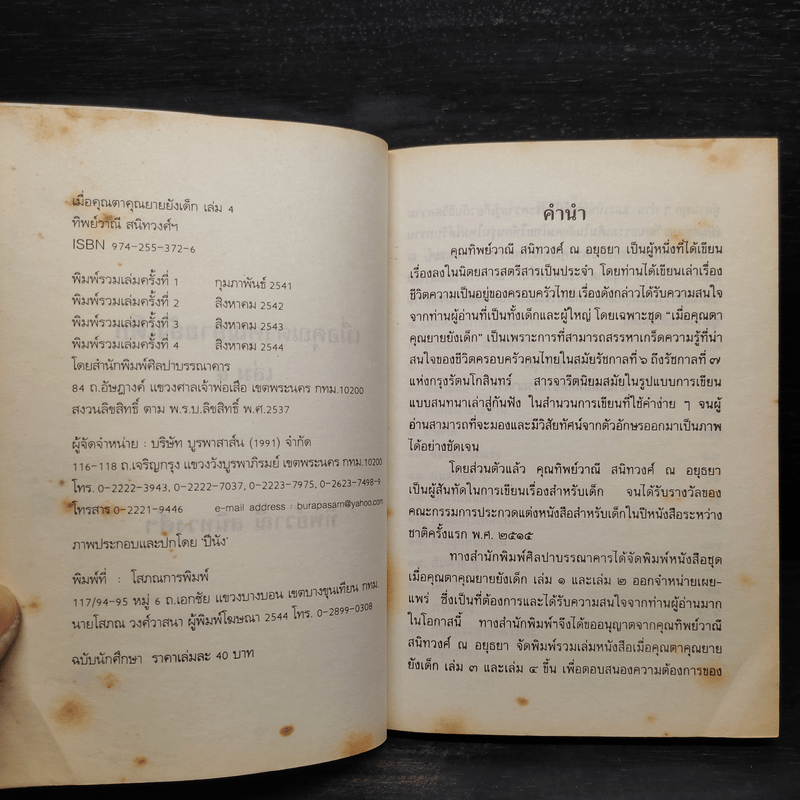 เมื่อคุณตาคุณยายยังเด็ก เล่ม 4
ทิพย์วาณี สนิทวงศ์ฯ
ISBN 974-255-372-6
พิมพ์รวมเล่มครั้งที่ 1 กุมภาพันธ์ 2541
พิมพ์รวมเล่มครั้งที่ 2 สิงหาคม 2542
พิมพ์รวมเล่มครั้งที่ 3 สิงหาคม 2543
พิมพ์รวมเล่มครั้งที่ 4 สิงหาคม 2544
โดยสำนักพิมพ์ศิลปาบรรณาคาร
84 ถ.อัษฎางค์ แขวงศาลเจ้าพ่อเสือ เขตพระนคร กทม.10200
สงวนลิขสิทธิ์ ตาม พ.ร.บ.ลิขสิทธิ์ พ.ศ.2537
ผู้จัดจำหน่าย : บริษัท บูรพาสาส์น (1991) จำกัด
116-118 ถ.เจริญกรุง แขวงวังบูรพาภิรมย์ เขตพระนคร กทม.10200
โทร. 0-2222-3943, 0-2222-7037, 0-2223-7975, 0-2623-7498-9
โทรสาร 0-2221-9446 e-mail address : burapasarn@yahoo.com
ภาพประกอบและปกโดย 'ปีนัง'
พิมพ์ที่ : โสภณการพิมพ์
117/94-95 หมู่ 6 ถ.เอกชัย แขวงบางบอน เขตบางขุนเทียน กทม.
นายโสภณ วงศ์วาสนา ผู้พิมพ์โฆษณา 2544 โทร. 0-2899-0308
ฉบับนักศึกษา ราคาเล่มละ 40 บาท
คำนำ
คุณทิพย์วาณี สนิทวงศ์ ณ อยุธยา เป็นผู้หนึ่งที่ได้เขียน
เรื่องลงในนิตยสารสตรีสารเป็นประจำ โดยท่านได้เขียนเล่าเรื่อง
ชีวิตความเป็นอยู่ของครอบครัวไทย เรื่องดังกล่าวได้รับความสนใจ
จากผู้อ่านที่เป็นทั้งเด็กและผู้ใหญ่ โดยเฉพาะชุด "เมื่อคุณตา
คุณยายยังเด็ก" เป็นเพราะการที่สามารถสรรหาเกร็ดความรู้ที่น่า
สนใจของชีวิตครอบครัวคนไทยในสมัยรัชกาลที่ ๖ ถึงรัชกาลที่ ๗
แห่งกรุงรัตนโกสินทร์ สารจารีตนิยมสมัยในรูปแบบการเขียน
แบบสนทนาเล่าสู่กันฟัง ในสำนวนการเขียนที่ใช้คำง่าย ๆ จนผู้
อ่านสามารถที่จะมองและมีวิสัยทัศน์จากตัวอักษรออกมาเป็นภาพ
ได้อย่างชัดเจน
โดยส่วนตัวแล้ว คุณทิพย์วาณี สนิทวงศ์ ณ อยุธยา
เป็นผู้สันทัดในการเขียนเรื่องสำหรับเด็ก จนได้รับรางวัลของ
คณะกรรมการประกวดแต่งหนังสือสำหรับเด็กในปีหนังสือระหว่าง
ชาติครั้งแรก พ.ศ. ๒๕๑๕
ทางสำนักพิมพ์ศิลปาบรรณาคารได้จัดพิมพ์หนังสือชุด
เมื่อคุณตาคุณยายยังเด็ก เล่ม ๑ และเล่ม ๒ ออกจำหน่ายเผย-
แพร่ ซึ่งเป็นที่ต้องการและได้รับความสนใจจากท่านผู้อ่านมาก
ในโอกาสนี้ ทางสำนักพิมพ์ฯจึงได้ขออนุญาตจากคุณทิพย์วาณี
สนิทวงศ์ ณ อยุธยา จัดพิมพ์รวมเล่มหนังสือเมื่อคุณตาคุณยาย
ยังเด็ก เล่ม ๓ และเล่ม ๔ ขึ้น เพื่อตอบสนองความต้องการของ